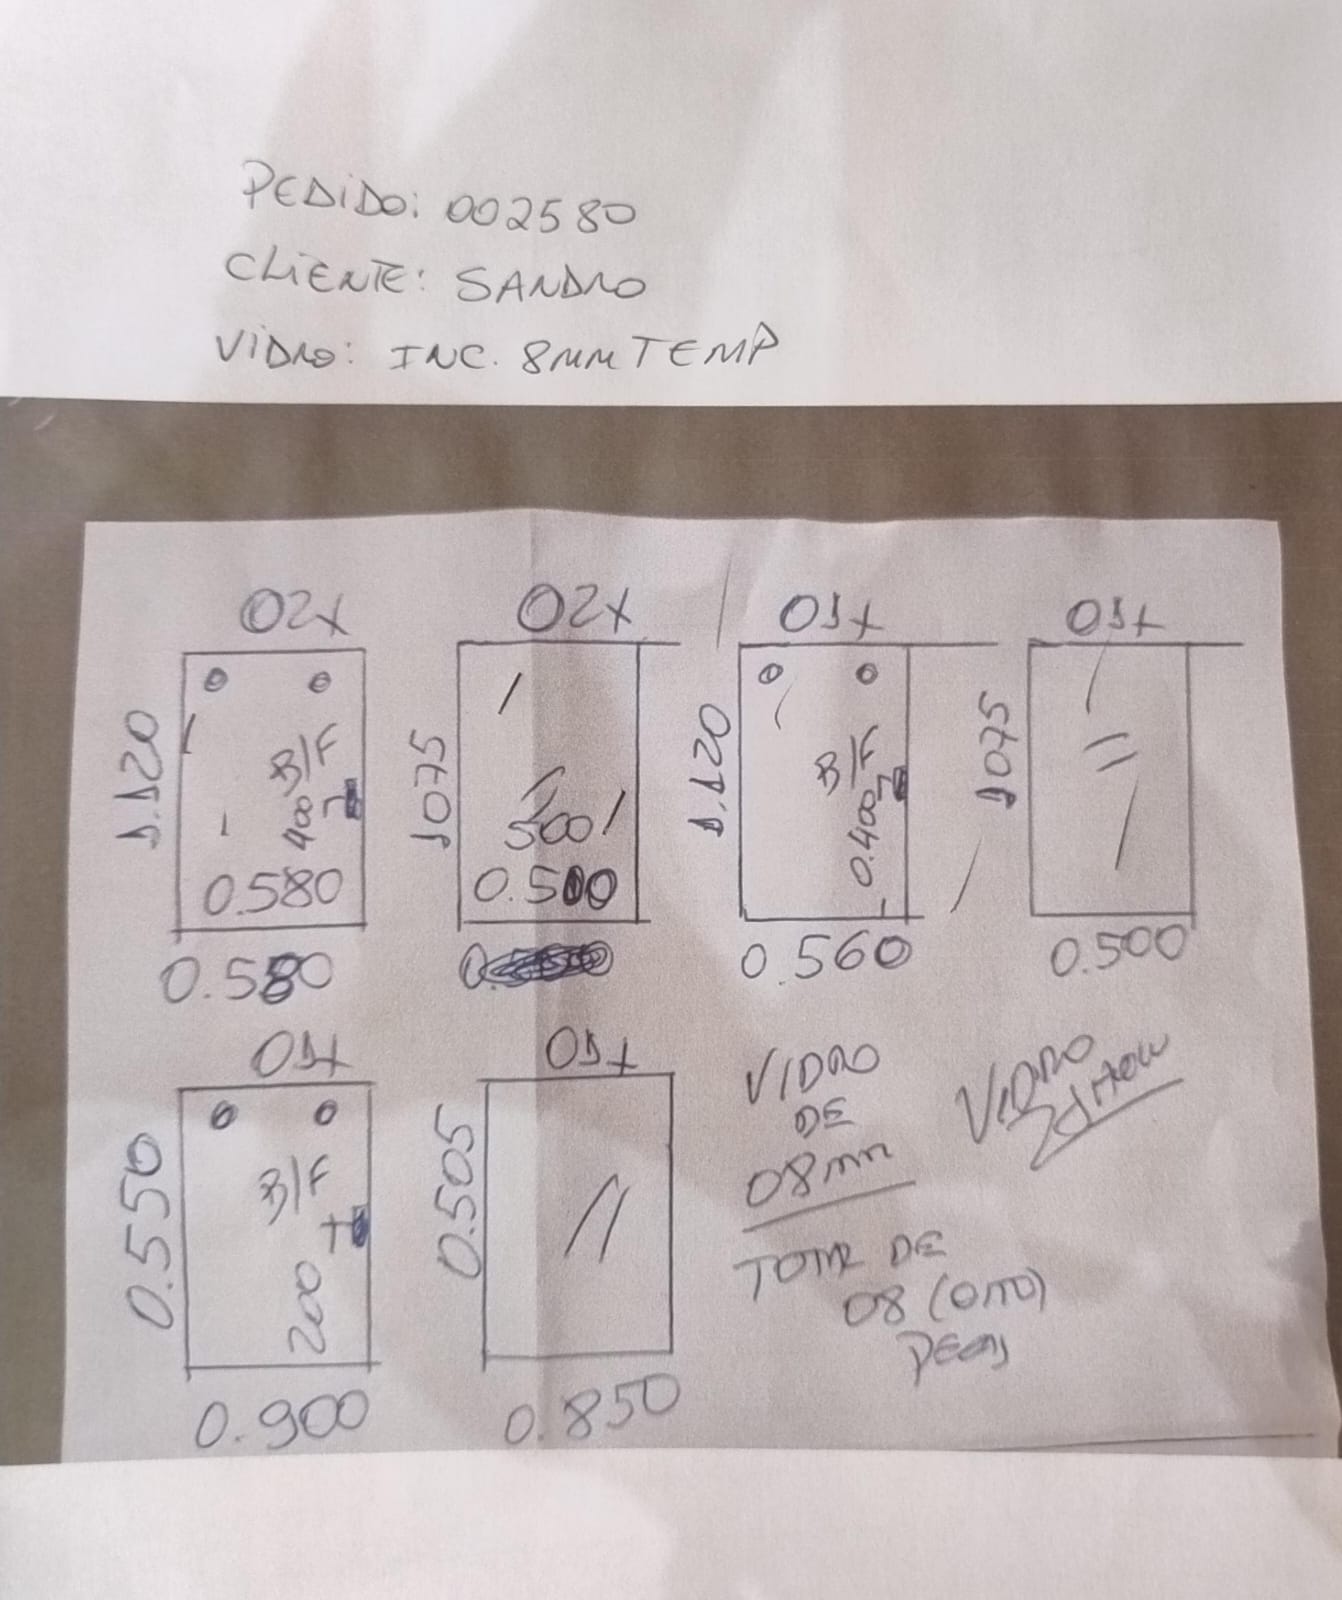 PEDIDO: 002580
CLIENTE: SANDRO
VIDRO: INC. 8MM TEMP
02x
02x
01x
01x
1.120
B/F
400
0.580
0.580
1075
500
0.500
1.120
B/F
0.400
0.560
1075
0.500
01x
01x
0.550
B/F
200
0.900
0.505
0.850
VIDRO
DE
08mm
TOTAL DE
08 (OITO)
PEÇAS
VIDRO